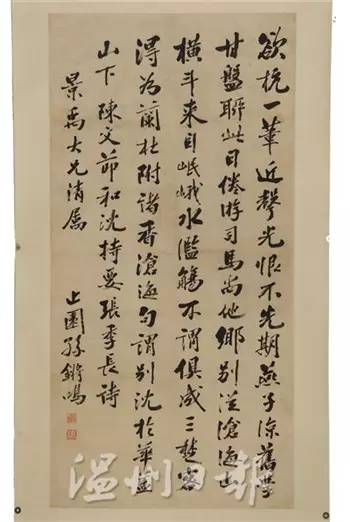 欲杭一葦近聲光恨不先期燕子涼舊學
甘盤聊此日倦游司馬尚他鄉別從滄海山
橫斗来自岷峨水濫觴不謂俱成三楚客
得為蘭杜附諸香滄海句謂別沈於華蓋
山下陳文節和沈持要張季長詩
景禹大兄清属
止園孫鏘鳴
温州日報